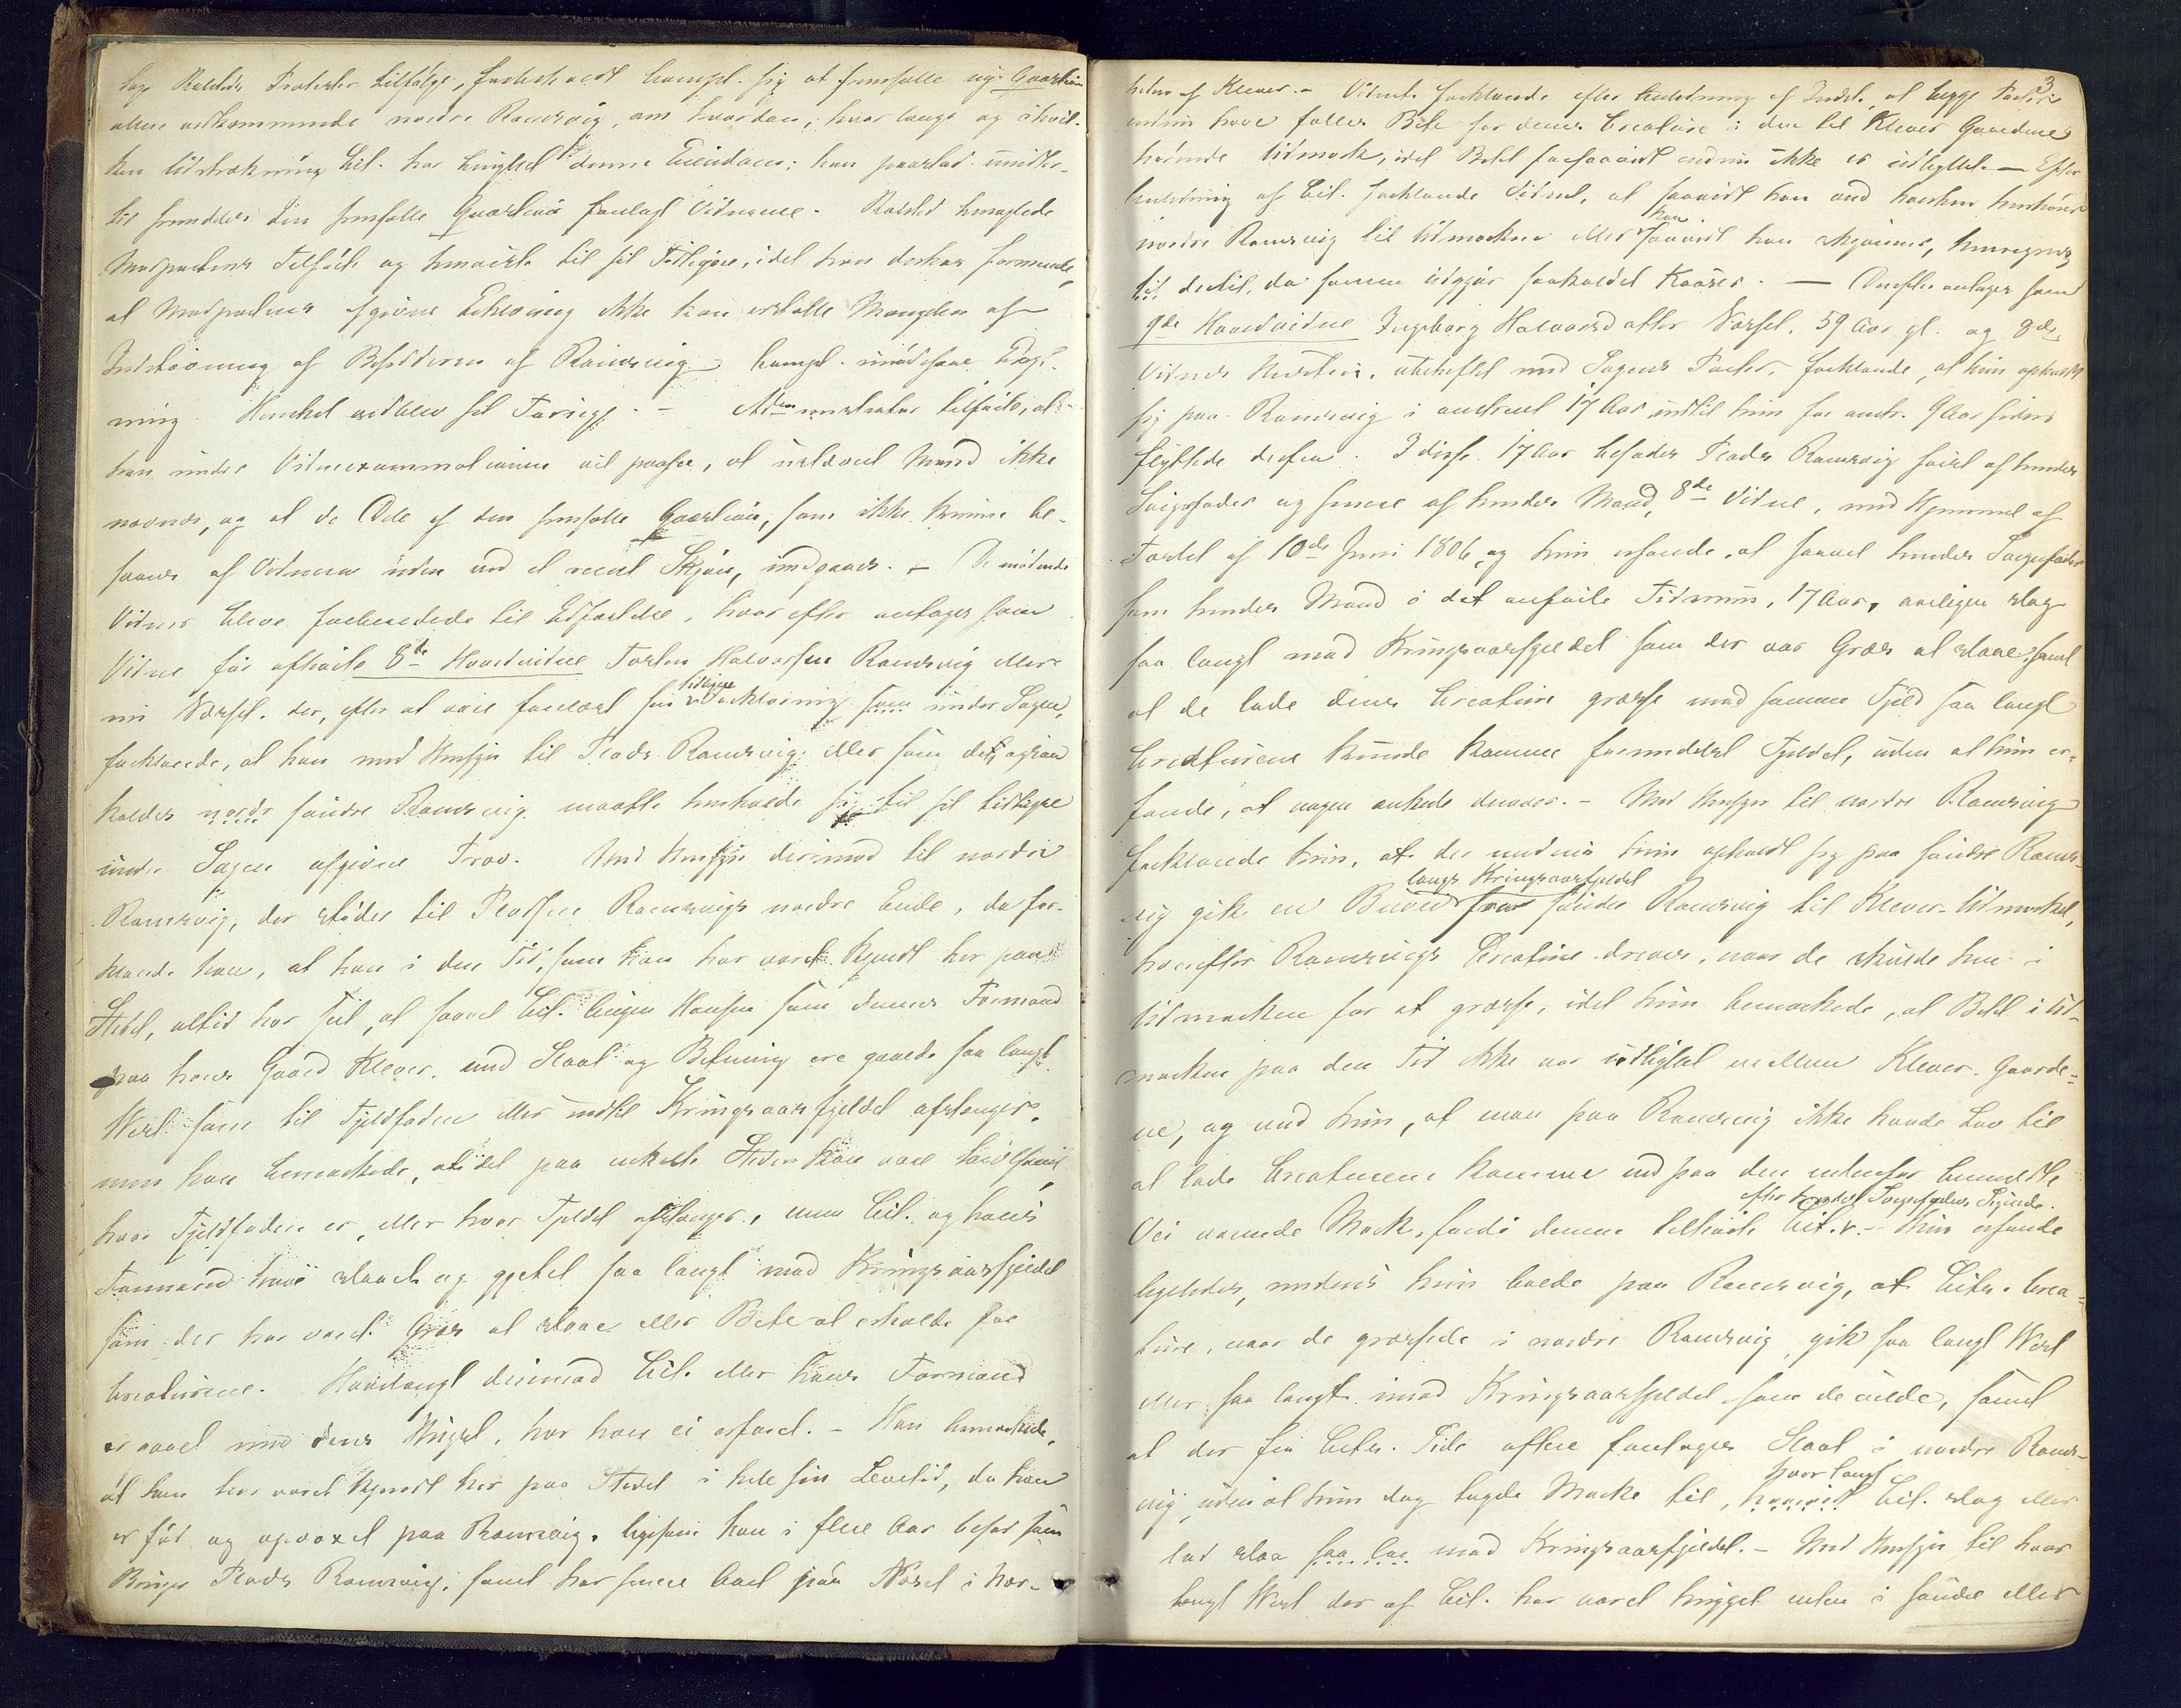 Protester tilfølge, forbeholdt Compt. sig at fremsætte nye Qvæstion
allene vedkommende nordre Ramsvig, om hvordan, hvorlænge og i hvil-
ken Udstrækning Cit. har benyttet denne Eiendom; han paastod imidler-
tid fremdeles den fremsatte Qvæstion forelagt Vidnerne. Rolsted benægtede
Modpartens Tilførte og henviste til sit Tidligere, idet han derhos formente,
at Modpartens afgivne Erklæring ikke kan erstatte Mangelen af
Indstævning af Besidderen af Ramsvig. Compt. imødesaae Dagt.
ning. Henkel vedblev sit Forrige. – Administrator tilførte, at
han under Vidneexaminationen vil paasee, at ustævnet Mand ikke
nævnes, og at de Dele af den fremsatte Qvæstion, som ikke kunne be-
svares af Vidnerne uden ved et reent Skjøn, undgaaes. – De mødende
Vidner bleve formanede til Edfæstelse, hvorefter antages som
Vidne før afhørte 8de Hovedvidne Torben Halvorsen Ramsvig eller
nu Nærset. der, efter at være forelæst sin tidligere Forklaring som under Sagen,
forklarede, at han med Hensyn til Plads Ramsvig eller som det ogsaa
kaldes nordr søndre Ramsvig maatte henholde sig til sit tidligere
under Sagen afgivne Prov. Med Hensyn derimod til nordre
Ramsvig, der støder til Pladsen Ramsvigs nordre Ende, da for-
klarede han, at han i den Tid, som han har været kjendt her paa
Stedet, altid har seet, at saavel Cit. Hansen som dennes Formand
paa hans Gaard Klever med Slaat og Beitning ere gaaede saa langt
Vest som til Fjeldfoden eller indtil Kringsaasfjeldet afstænger,
men han bemærkede, at det paa enkelte Steder kan være tvivlsomt,
hvor Fjeldfoden er, eller hvor Fjeldet afstænger, men Cit. og hans
Formand have slaaet og gjetet saa langt mod Kringsaasfjeldet
som der har været Græs at slaae eller Beite at erholde for
Creaturene. Hvorlangt derimod Cit. eller hans Formand
er gaaet med deres Hugst, har han ei erfaret. – Han bemærkede,
at han har været kjendt her paa Stedet i hele sin Levetid, da han
er født og opvoxet paa Ramsvig, ligesom han i flere Aar besad som
Bruger Plads Ramsvig, samt har senere boet paa Nærset i Nær-
3
heden af Klever. – Vidnet forklarede efter Anledning af Indst. at begge Parter
endnu have fælles Beite for deres Creature i den til Klever Gaardene
hørende Udmark, idet Beitet forsaavidt endnu ikke er udskiftet. – Efter
Anledning af Cit. forklarede Vidnet, at saavidt han ved henhører
nordre Ramsvig til Udmarken eller han saavidt han skjønner, henregnes
til dertil, da samme udgjør saakaldet Kaaser. – Derefter antages som
9de Hovedvidne Ingeborg Halvorsdatter Nærset, 59 Aar gl. og 8de
Vidnes Hustru, ubeheftet med Sagens Parter, forklarede, at hun opholdt
sig paa Ramsvig i omtrent 17 Aar indtil hun for omtr. 9 Aar siden
flyttede derfra. I disse 17 Aar besades Plads Ramsvig først af hendes
Svigerfader og senere af hendes Mand, 8de Vidne, med Hjemmel af
Fæstel af 10de Juni 1806, og hun erfarede, at saavel hendes Svigerfader
som hendes Mand i det anførte Tidsrum, 17 Aar, aarligen slog
saa langt mod Kringsaasfjeldet som der var Græs at slaae, samt
at de lode deres Creature græsse mod samme Fjeld saa langt
Creaturene kunde komme formedelst Fjeldet, uden at hun er-
farede, at nogen ankede derover. – Med Hensyn til nordre Ramsvig
forklarede hun, at der medens hun opholdt sig paa søndre Rams-
vig gik en Buvei langs Kringsaasfjeldet fra søndre Ramsvig til Klever-Udmarken,
hvorefter Ramsvigs Creature dreves, naar de skulde hen i
Udmarken for at græsse, idet hun bemærkede, at Beitet i Ud-
marken paa den Tid ikke var udskiftet mellem Klever-Gaarde-
ne, og ved hun, at man paa Ramsvig ikke havde Lov til
at lade Creaturene komme ind paa den nedenfor bemeldte
Vei værende Mark, fordi denne tilhørte Cit. efter hendes Svigerfaders Sigende. – Hun erfarede
ligeledes, medens hun boede paa Ramsvig, at Citn. Crea-
ture, naar de græssede i nordre Ramsvig, gik saa langt Vest
eller saa langt imod Kringsaasfjeldet som de vilde, samt
at der fra Citn. Side oftere foretoges Slaat i nordre Rams-
vig, uden at hun dog lagde Mærke til, hvor langt hvorvidt Cit. slog eller
lod slaa saa lan mod Kringsaasfjeldet. – Med Hensyn til hvor
langt Vest der af Cit. har været hugget enten i søndre eller